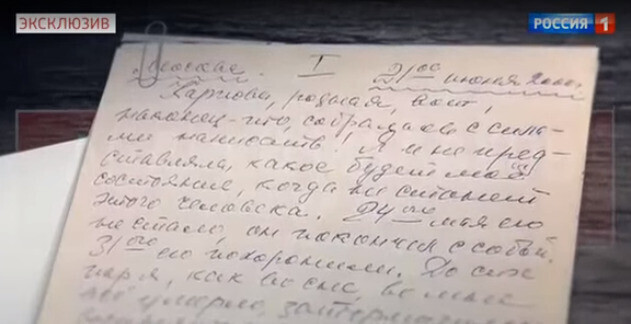 ЭКСКЛЮЗИВ
РОССИЯ 1
Москва. I 21ое июня
родная, вот,
наконец-то, собралась с сила-
ми написать! Я и не пред-
ставляла, какое будет моё
состояние, когда не станет
этого человека. 24ого мая его
не стало, он покончил с собой.
31ого его похоронили. До сих
пор я, как во сне, во мне
всё умерло,